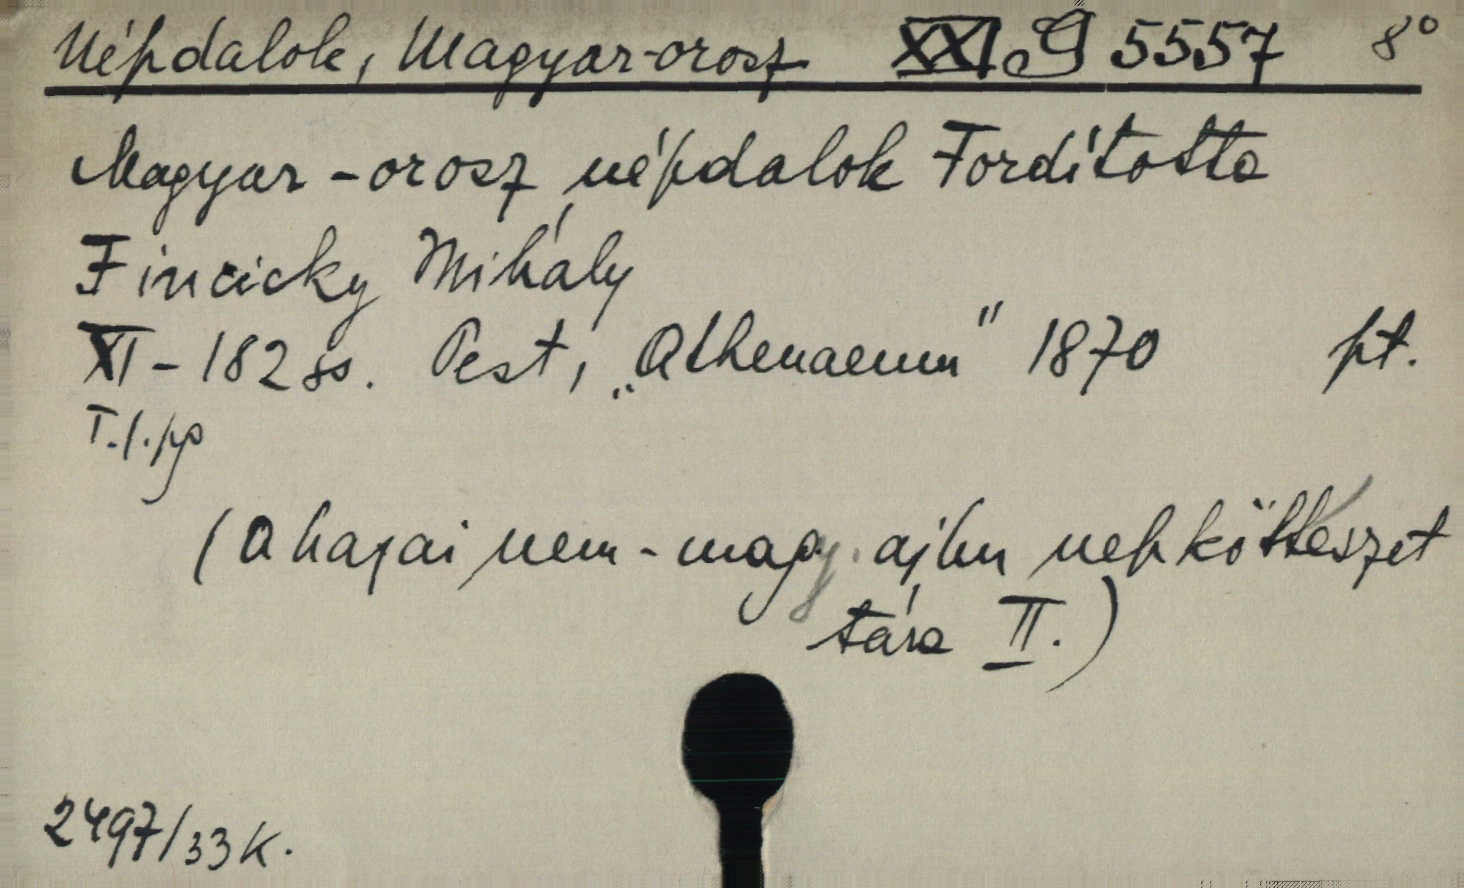 Népdalok, Magyar-orosz XXI G 5557 8°
Magyar-orosz népdalok Fordította
Fincicky Mihály
XI-182 ss. Pest, „Athenaeum" 1870 pt.
T.f.
(A hazai nem-magy. ajku népköltészet
tára II.)
2497/33 K.